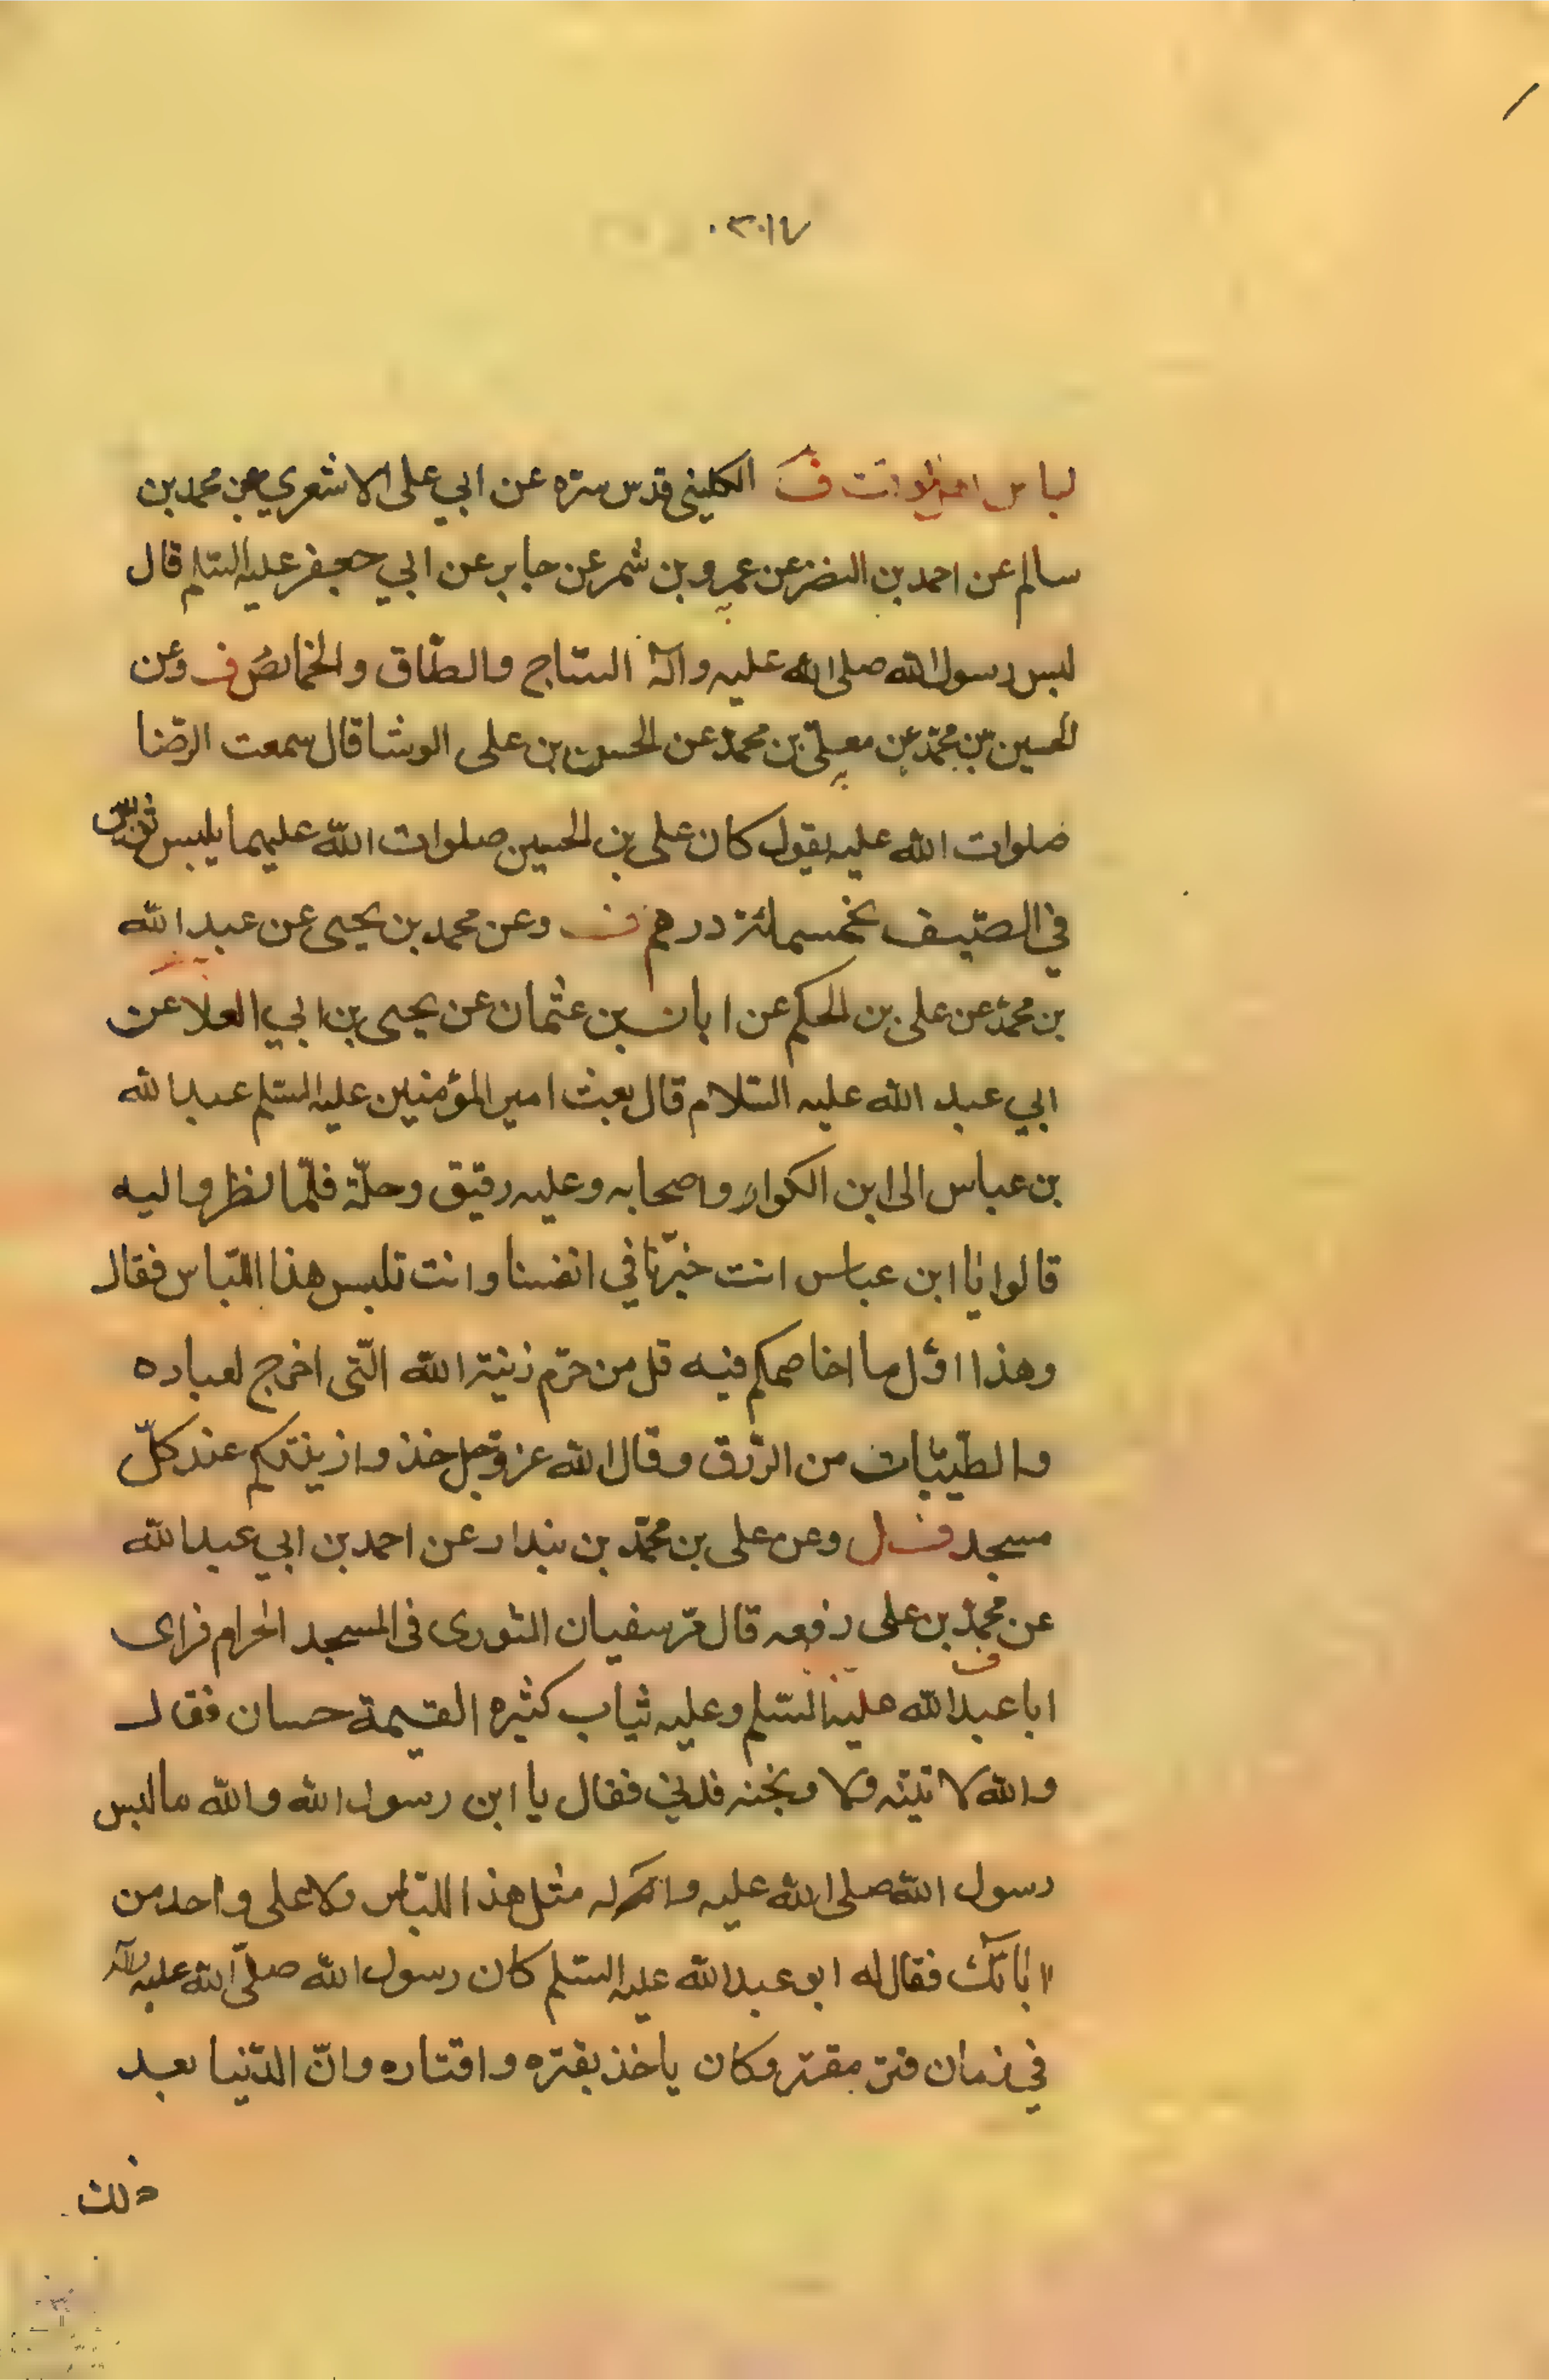 ٣٠١٧
لباس ف الكليني قدس سره عن ابي على الاشعري عن محمد بن
سالم عن احمد بن النضر عن عمرو بن شمر عن جابر عن ابي جعفر عليه السلم قال
لبس رسول الله صلى الله عليه وآله الساج والطاق والخمائص ف وعن
الحسين بن محمد عن معلى بن محمد عن الحسن بن على الوشا قال سمعت الرضا
صلوات الله عليه يقول كان على بن الحسين صلوات الله عليهما يلبس ثوبين
في الصيف بخمسمائة درهم ف وعن محمد بن يحيى عن عبد الله
بن محمد عن على بن الحكم عن ابان بن عثمان عن يحيى بن ابي العلا عن
ابي عبد الله عليه السلام قال بعث امير المؤمنين عليه السلم عبد الله
بن عباس الى ابن الكوا واصحابه وعليه رقيق وحلّة فلمّا نظروا اليه
قالوا يا ابن عباس انت خيرنا في انفسنا وانت تلبس هذا اللباس فقال
وهذا اوّل ما اخاصمكم فيه قل من حرّم زينة الله الّتى اخرج لعباده
والطيّبات من الرّزق وقال الله عزّ وجل خذوا زينتكم عند كلّ
مسجد ف ل وعن على بن محمّد بن بندار عن احمد بن ابي عبد الله
عن محمد بن على رفعه قال مرّ سفيان الثورى فى المسجد الحرام فراى
ابا عبد الله عليه السلم وعليه ثياب كثيرة القيمة حسان فقال
والله لا تينّه ولا وبخنه فدنى فقال يا ابن رسول الله والله ما لبس
رسول الله صلى الله عليه وآله مثل هذا اللباس ولا على ولا احد من
اٰبائك فقال له ابو عبد الله عليه السلم كان رسول الله صلّى الله عليه وآله
في زمان قتر مقتر وكان ياخذ بقتره واقتاره وانّ الدّنيا بعد
ذلك